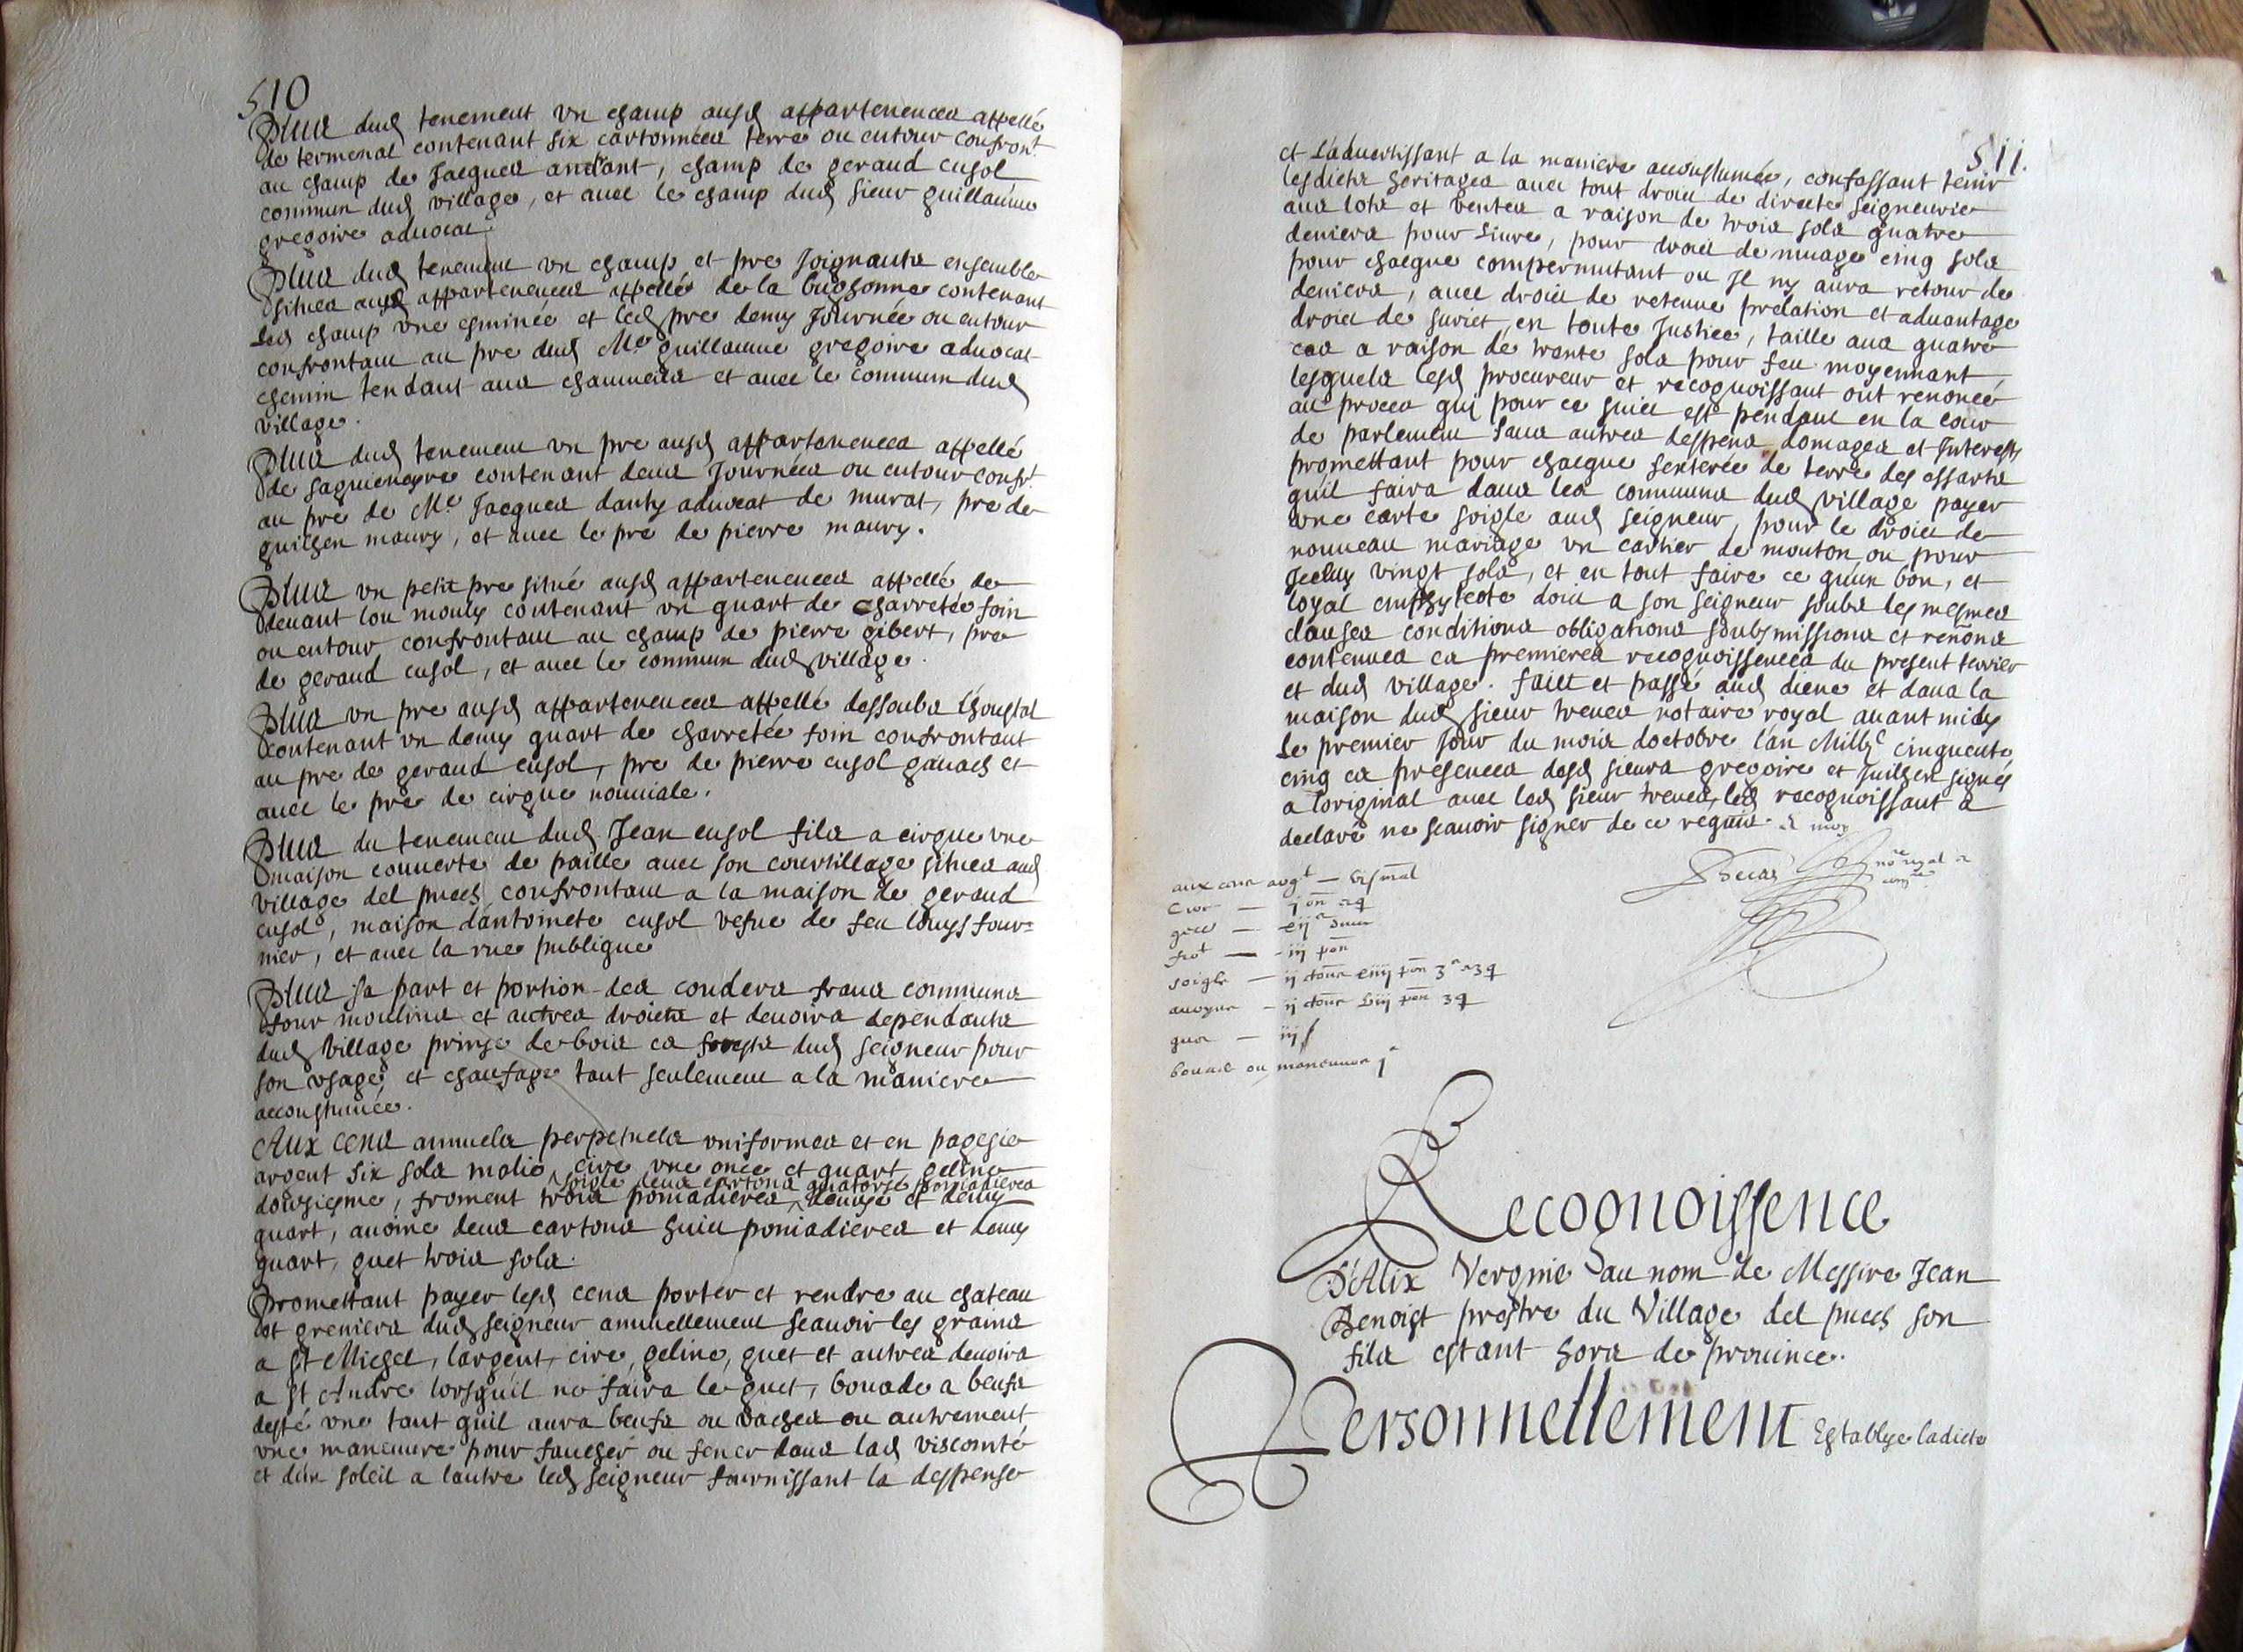 510
Plus dud tenement un champ ausd appartenences appellé
de termenal contenant six cartonnées terre ou entour confront
au champ de Jacques andant, champ de geraud cusol
commun dud village, et avec le champ dud sieur guillaume
gregoire advocat.
Plus dud tenement un champ et pre joignants ensemble
situes ausd appartenences appellé de la bughonne contenant
led champ une eminée et led pre demy journée ou entour
confrontant au pre dud Me guillaume gregoire advocat
chemin tendant aux chaumeils et avec le commun dud
village.
Plus dud tenement un pre ausd appartenences appellé
de saguieneyre contenant deux journées ou entour confr.t
au pre de Me Jacques danty advocat de murat, pre de
guilhen maury, et avec le pre de pierre maury.
Plus un petit pre situé ausd appartenences appellé de
devant lou mouly contenant un quart de charretée foin
ou entour confrontant au champ de pierre gibert, pre
de geraud cusol, et avec le commun dud village.
Plus un pre ausd appartenences appellé dessoubs lhoustal
contenant un demy quart de charretée foin confrontant
au pre de geraud cusol, pre de pierre cusol ganach et
avec le pre de cirgue nouviale.
Plus du tenement dud Jean cusol fils a cirgue une
maison couverte de paille avec son courtillage situes aud
village del puech confrontant a la maison de geraud
cusol, maison dantoinete cusol vefue de feu louys four=
nier, et avec la rue publique
Plus sa part et portion des couders fraux communs
four moulins et autres droicts et devoirs dependants
dud village prinse de bois es forests dud seigneur pour
son usage, et chaufage tant seulement a la maniere
accoustumée.
Aux cens annuels perpetuels uniformes et en pagesie
argent six sols malie, cire une once et quart, geline
soigle deux cartons quatorse poniadieres
douziesme, froment trois poniadieres, demye et demy
quart, avoine deux cartons huict poniadieres et demy
quart, guet trois sols.
Promettant payer lesd cens porter et rendre au chateau
et greniers dud seigneur annuellement scavoir les grains
a st Michel, largent, cire, geline, guet et autres devoirs
a st Andre lorsquil ne faira le guet, bouade a beufs
desté une tant quil aura beufs ou vaches ou autrement
une maneuvre pour faucher ou fener dans lad viscomté
et dun soleil a lautre led seigneur fournissant la despense
511.
et ladvertissant a la maniere accoustumée, confassant tenir
lesdicts heritages avec tout droict de directe seigneurie
aux lots et ventes a raison de trois sols quatre
deniers pour livre, pour droict de muage cinq sols
pour chacque compermutant ou Il ny aura retour de
deniers, avec droict de retenue prelation et advantage
droict de surict, en toute Justice, taille aux quatre
cas a raison de trente sols pour feu moyennant
lesquels lesd procureur et recognoissant ont renoncé
au procez qui pour ce suict est pendant en la cour
de parlement sans autres despens domages et Interests
promettant pour chacque sexterée de terre des essarts
quil faira dans les communs dud village payer
une carte soigle aud seigneur, pour le droict de
nouveau mariage un cartier de mouton ou pour
Iceluy vingt sols, et en tout faire ce quun bon, et
loyal emphyteote doit a son seigneur soubs les mesmes
clauses conditions obligations soubsmissions et renons
contenues es premieres recognoissences du present terrier
et dud village. faict et passé aud diene et dans la
maison dud sieur treves notaire royal avant midy
le premier jour du mois doctobre lan Mil VIc cinquente
cinq es presences desd sieurs gregoire et Juilhen signés
a loriginal avec led sieur treves, led recognoissant a
declaré ne scavoir signer de ce requis. & moy
Treves no.re royal
aux cens argt — vi s mal
Cire — j on
gel —
frot — iij pon
soigle — ij
avoyne — ij
guet — iij s
bouade ou maneuvre j
Recognoissence
D'Alix Vergnie au nom de Messire Jean
Benoist prestre du Village del puech son
fils estant hors de province.
Personnellement Establye ladicte